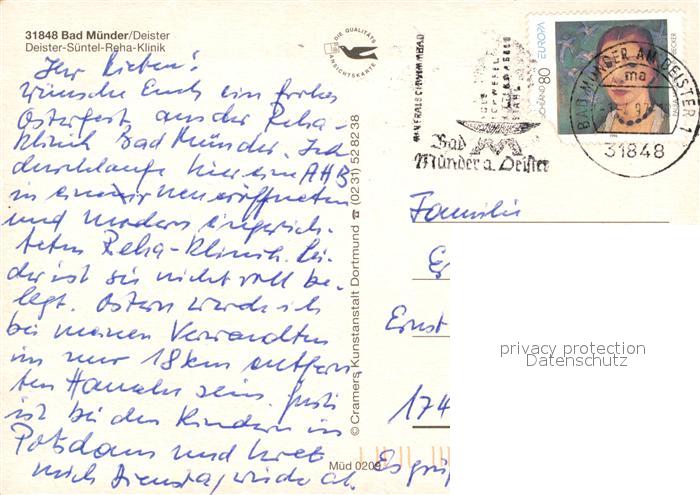 31848 Bad Münder/Deister
Deister-Süntel-Reha-Klinik
DIE QUALITÄTS
ANSICHTSKARTE
Ihr Lieben!
Wünsche Euch ein frohes
Osterfest aus der Reha-
Klinik Bad Münder. Ich
durchlaufe hier eine AHB
in einer neueröffneten
und modern eingerich-
teten Reha-Klinik. Lei-
der ist sie nicht voll be-
legt. Ostern werde ich
bei meinen Verwandten
im nur 18 km entfern-
ten Hameln sein.
ist bei den Kindern in
Potsdam und
mich Dienstag wieder ab.
© Cramers Kunstanstalt Dortmund ☎ (0231) 528238
Müd 0209
MINERALHEILBAD
Bad
Münder a. Deister
EUROPA
80
BAD MÜNDER AM DEISTER 1
ma
31848
Familie
Ernst
174
Es grü
privacy protection
Datenschutz